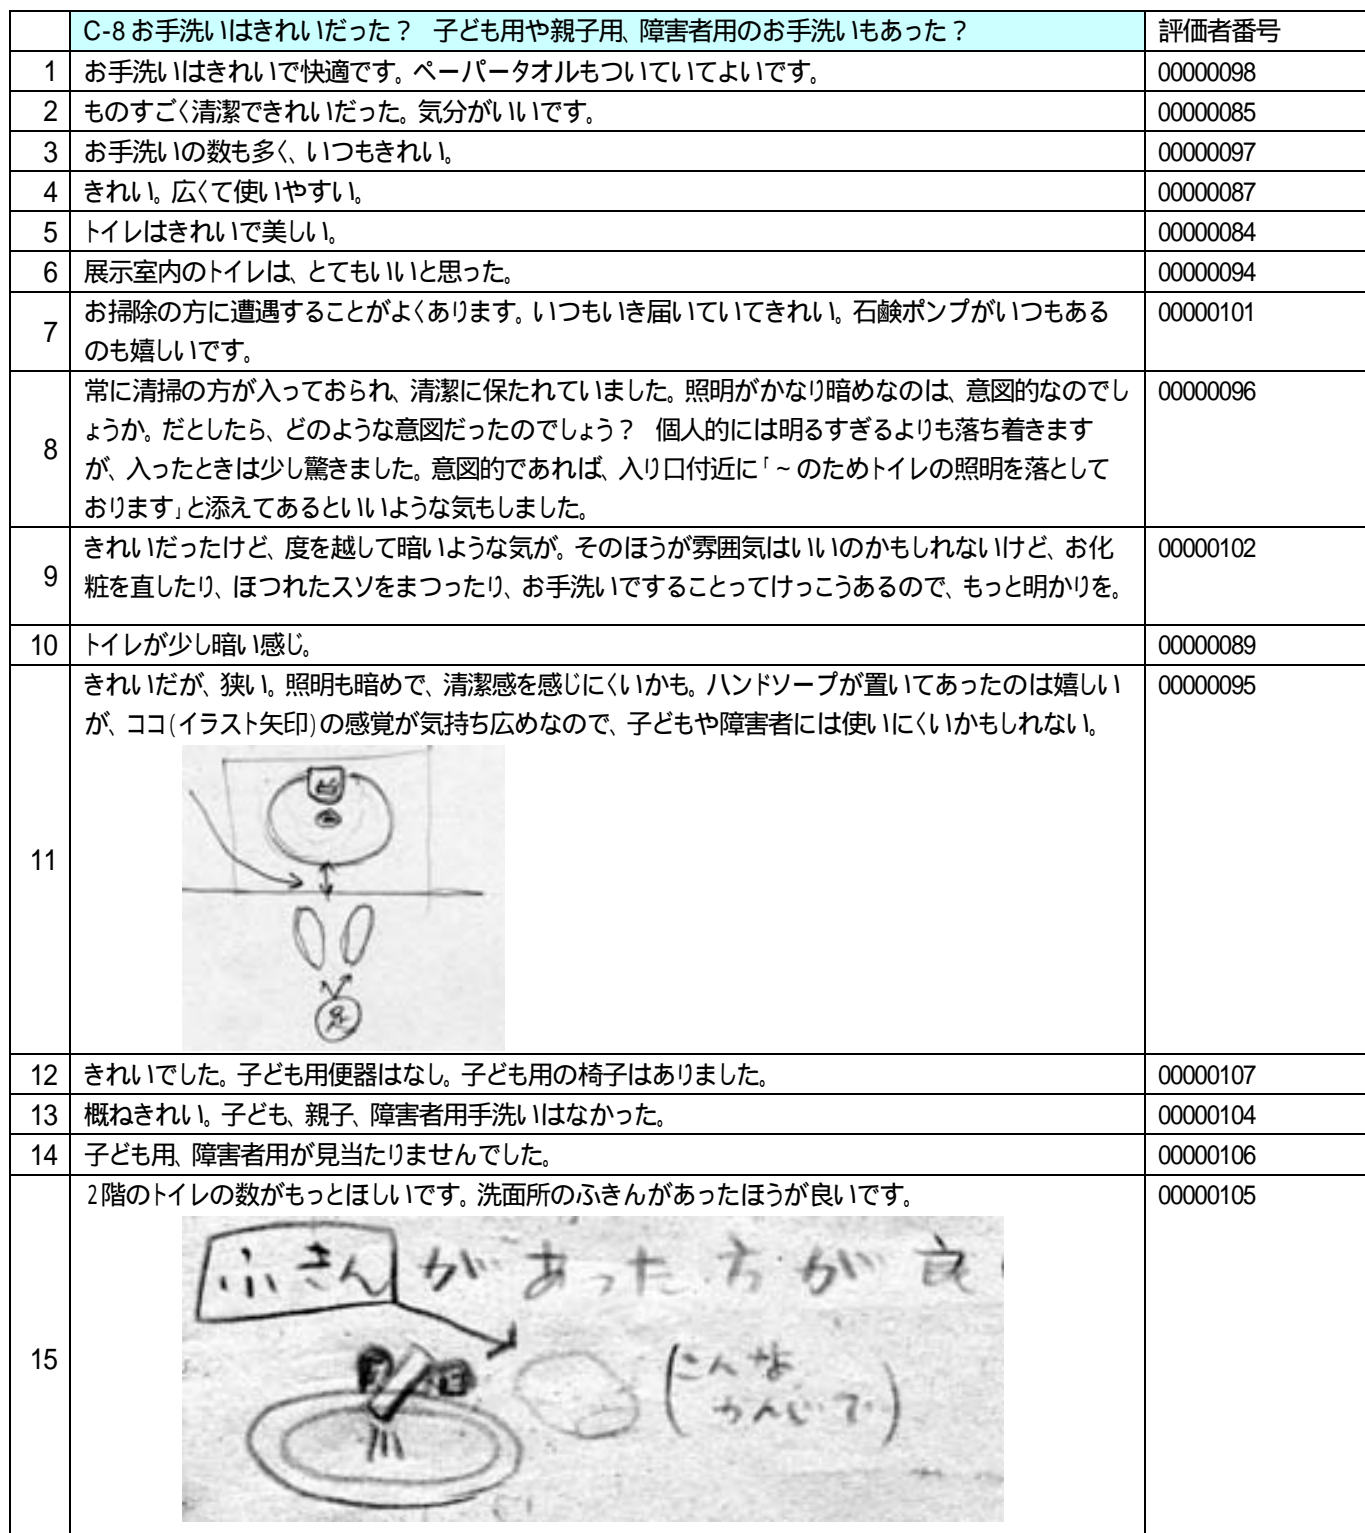 C-8お手洗いはきれいだった？　子ども用や親子用、障害者用のお手洗いもあった？ 評価者番号
1 お手洗いはきれいで快適です。ペーパータオルもついていてよいです。 00000098
2 ものすごく清潔できれいだった。気分がいいです。 00000085
3 お手洗いの数も多く、いつもきれい。 00000097
4 きれい。広くて使いやすい。 00000087
5 トイレはきれいで美しい。 00000084
6 展示室内のトイレは、とてもいいと思った。 00000094
7 お掃除の方に遭遇することがよくあります。いつもいき届いていてきれい。石鹸ポンプがいつもある 00000101
のも嬉しいです。
8 常に清掃の方が入っておられ、清潔に保たれていました。照明がかなり暗めなのは、意図的なのでし 00000096
ょうか。だとしたら、どのような意図だったのでしょう？　個人的には明るすぎるよりも落ち着きます
が、入ったときは少し驚きました。意図的であれば、入り口付近に「～のためトイレの照明を落として
おります」と添えてあるといいような気もしました。
9 きれいだったけど、度を越して暗いような気が。そのほうが雰囲気はいいのかもしれないけど、お化 00000102
粧を直したり、ほつれたスソをまつったり、お手洗いですることってけっこうあるので、もっと明かりを。
10 トイレが少し暗い感じ。 00000089
11 きれいだが、狭い。照明も暗めで、清潔感を感じにくいかも。ハンドソープが置いてあったのは嬉しい 00000095
が、ココ(イラスト矢印)の感覚が気持ち広めなので、子どもや障害者には使いにくいかもしれない。
足
12 きれいでした。子ども用便器はなし。子ども用の椅子はありました。 00000107
13 概ねきれい。子ども、親子、障害者用手洗いはなかった。 00000104
14 子ども用、障害者用が見当たりませんでした。 00000106
15 2階のトイレの数がもっとほしいです。洗面所のふきんがあったほうが良いです。 00000105
ふきんがあった方が良
(こんな
かんじで)